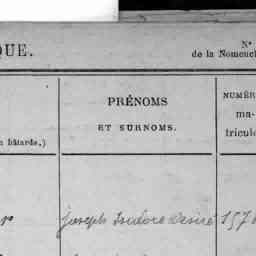 QUE.
N°
de la Nomencl
PRÉNOMS
ET SURNOMS.
NUMÉR
ma-
tricul
bâtarde,)
Joseph Isidore Désiré 157